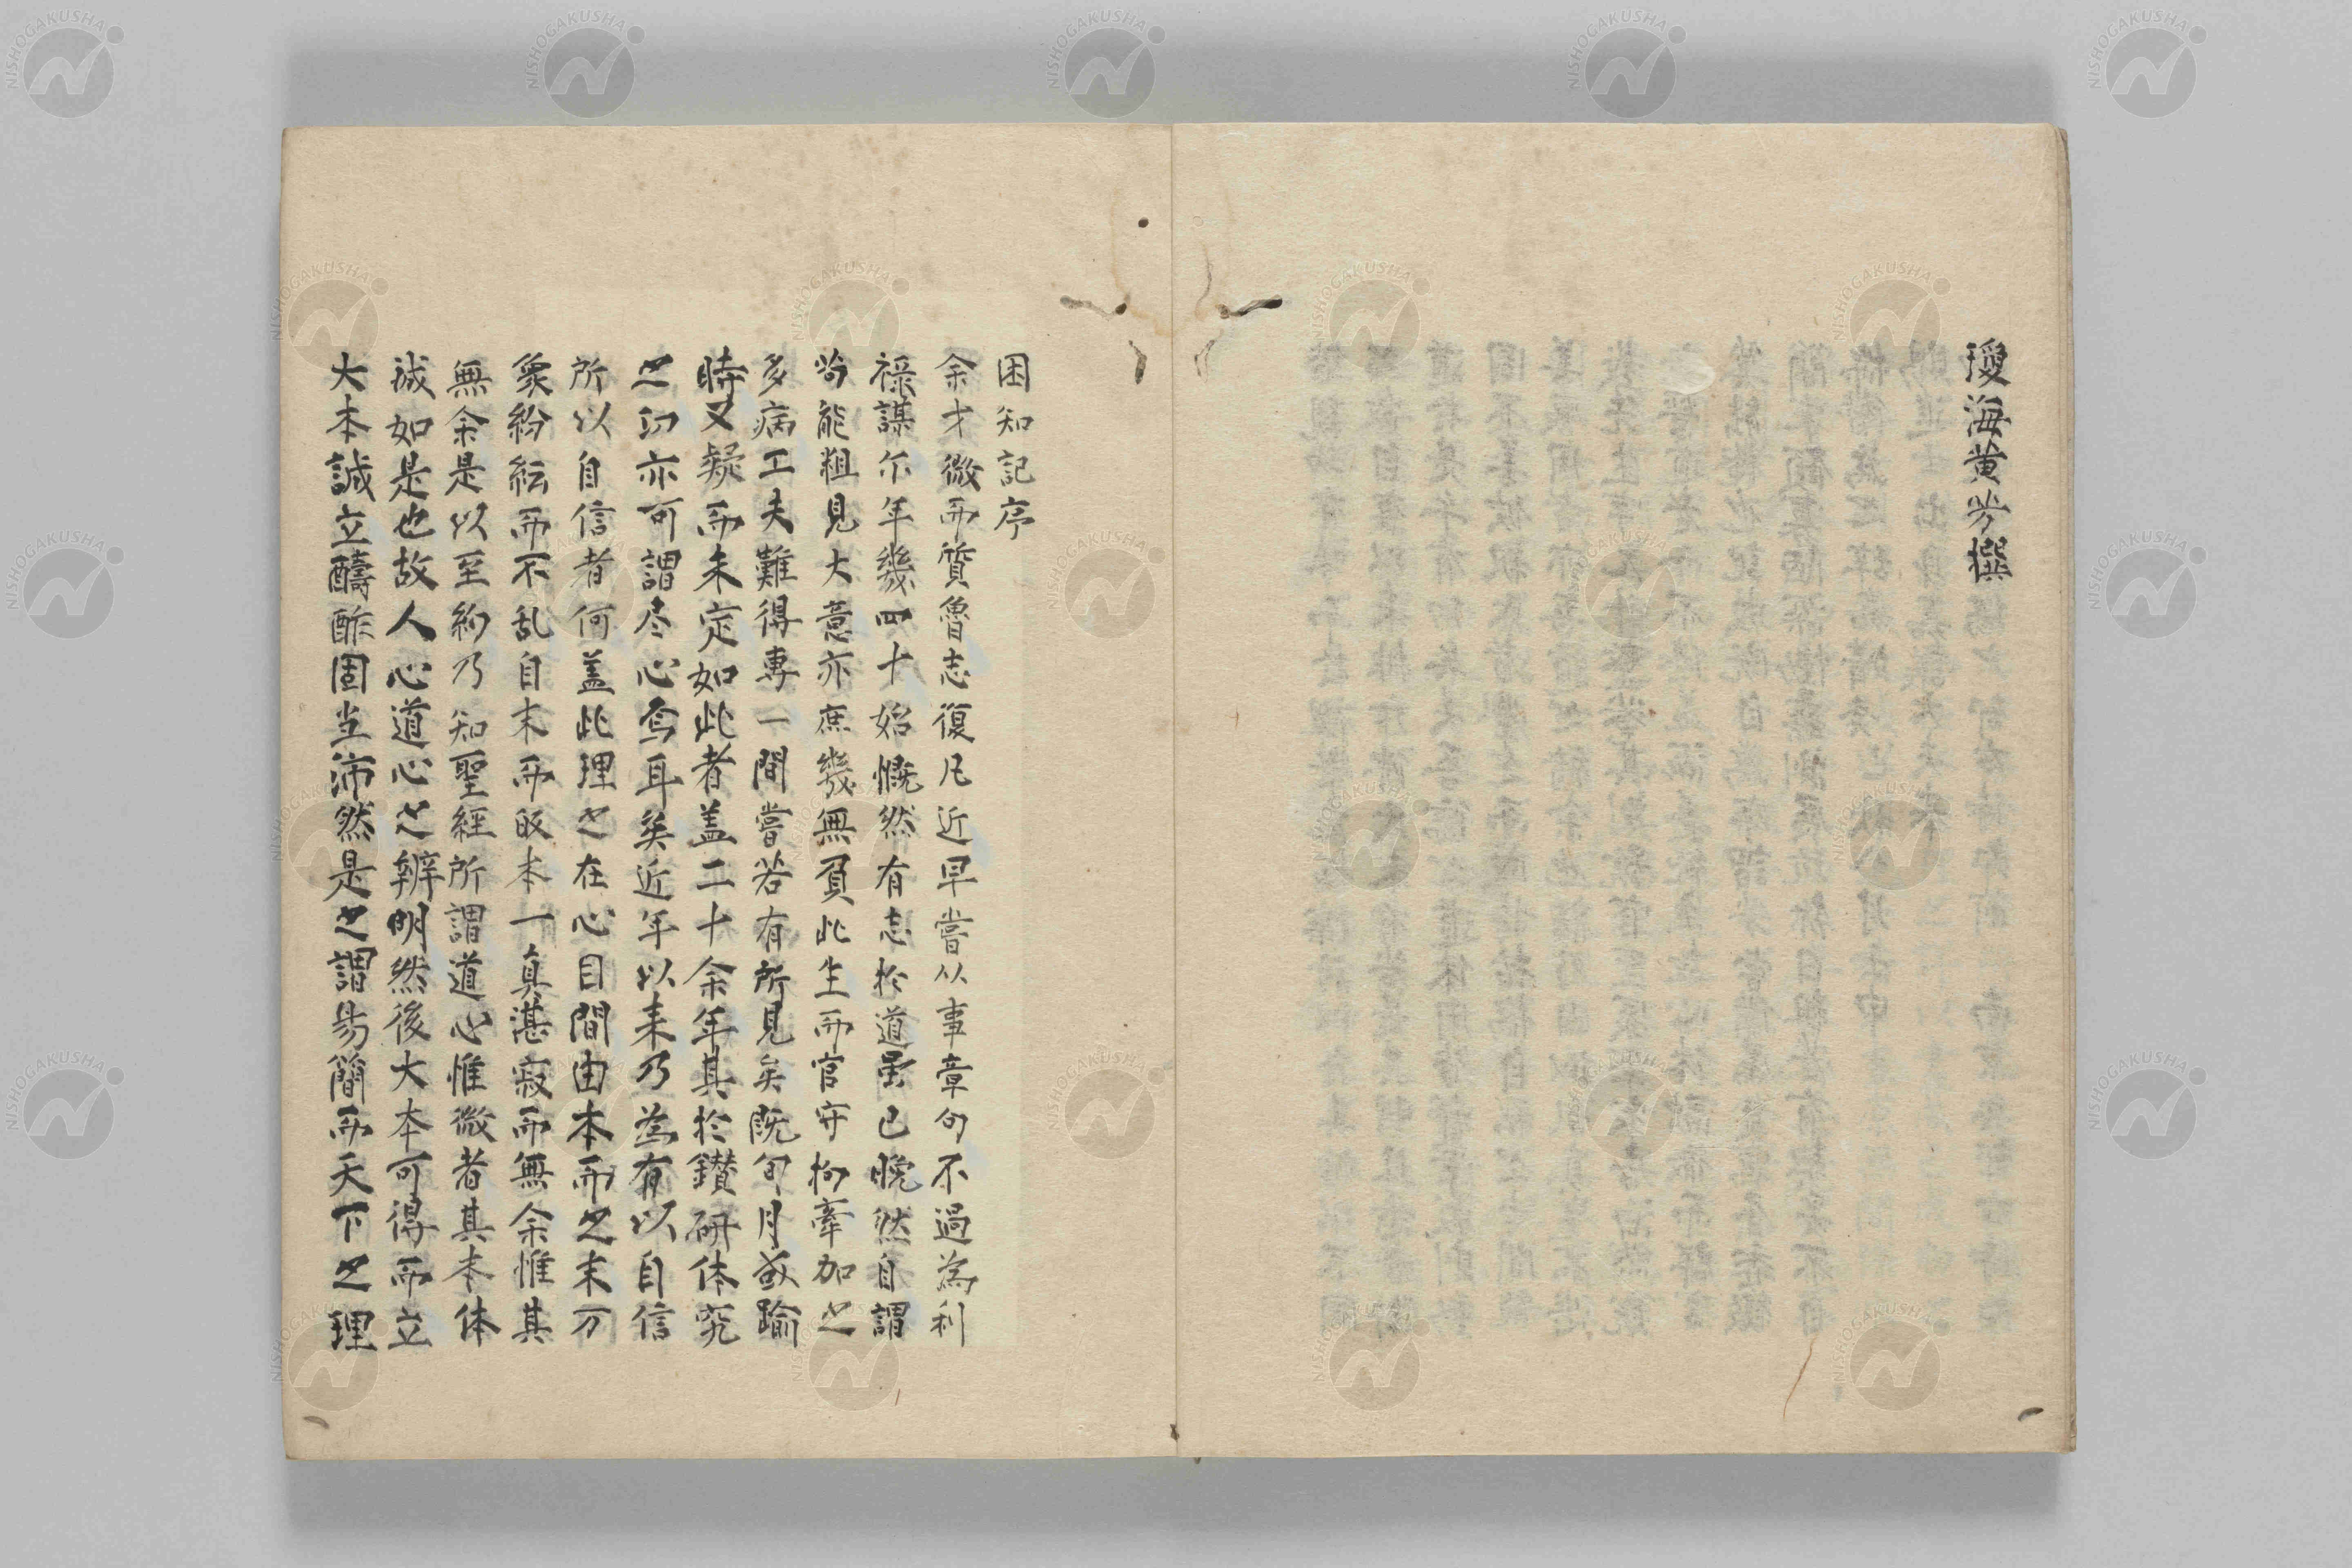 瓊海黄芳撰
困知記序
余才微而質魯志復凡近早嘗从事章句不過為利
禄謀尓年幾四十始慨然有志於道虽已晩然自謂
苟能粗見大意亦庶幾無負此生而官守拘牽加之
多病工夫難得専一間嘗若有所見矣既旬月或踰
時又疑而未定如此者盖二十余年其於鑚研体究
之功亦可謂尽心焉耳矣近年以来乃為有以自信
所以自信者何盖此理之在心目間由本而之末万
象紛紜而不乱自末而皈本一真湛寂而無余惟其
無余是以至約乃知聖經所謂道心惟微者其本体
誠如是也故人心道心之辨明然後大本可得而立
大本誠立醻酢固当沛然是之謂易簡而天下之理
NISHOGAKUSHA